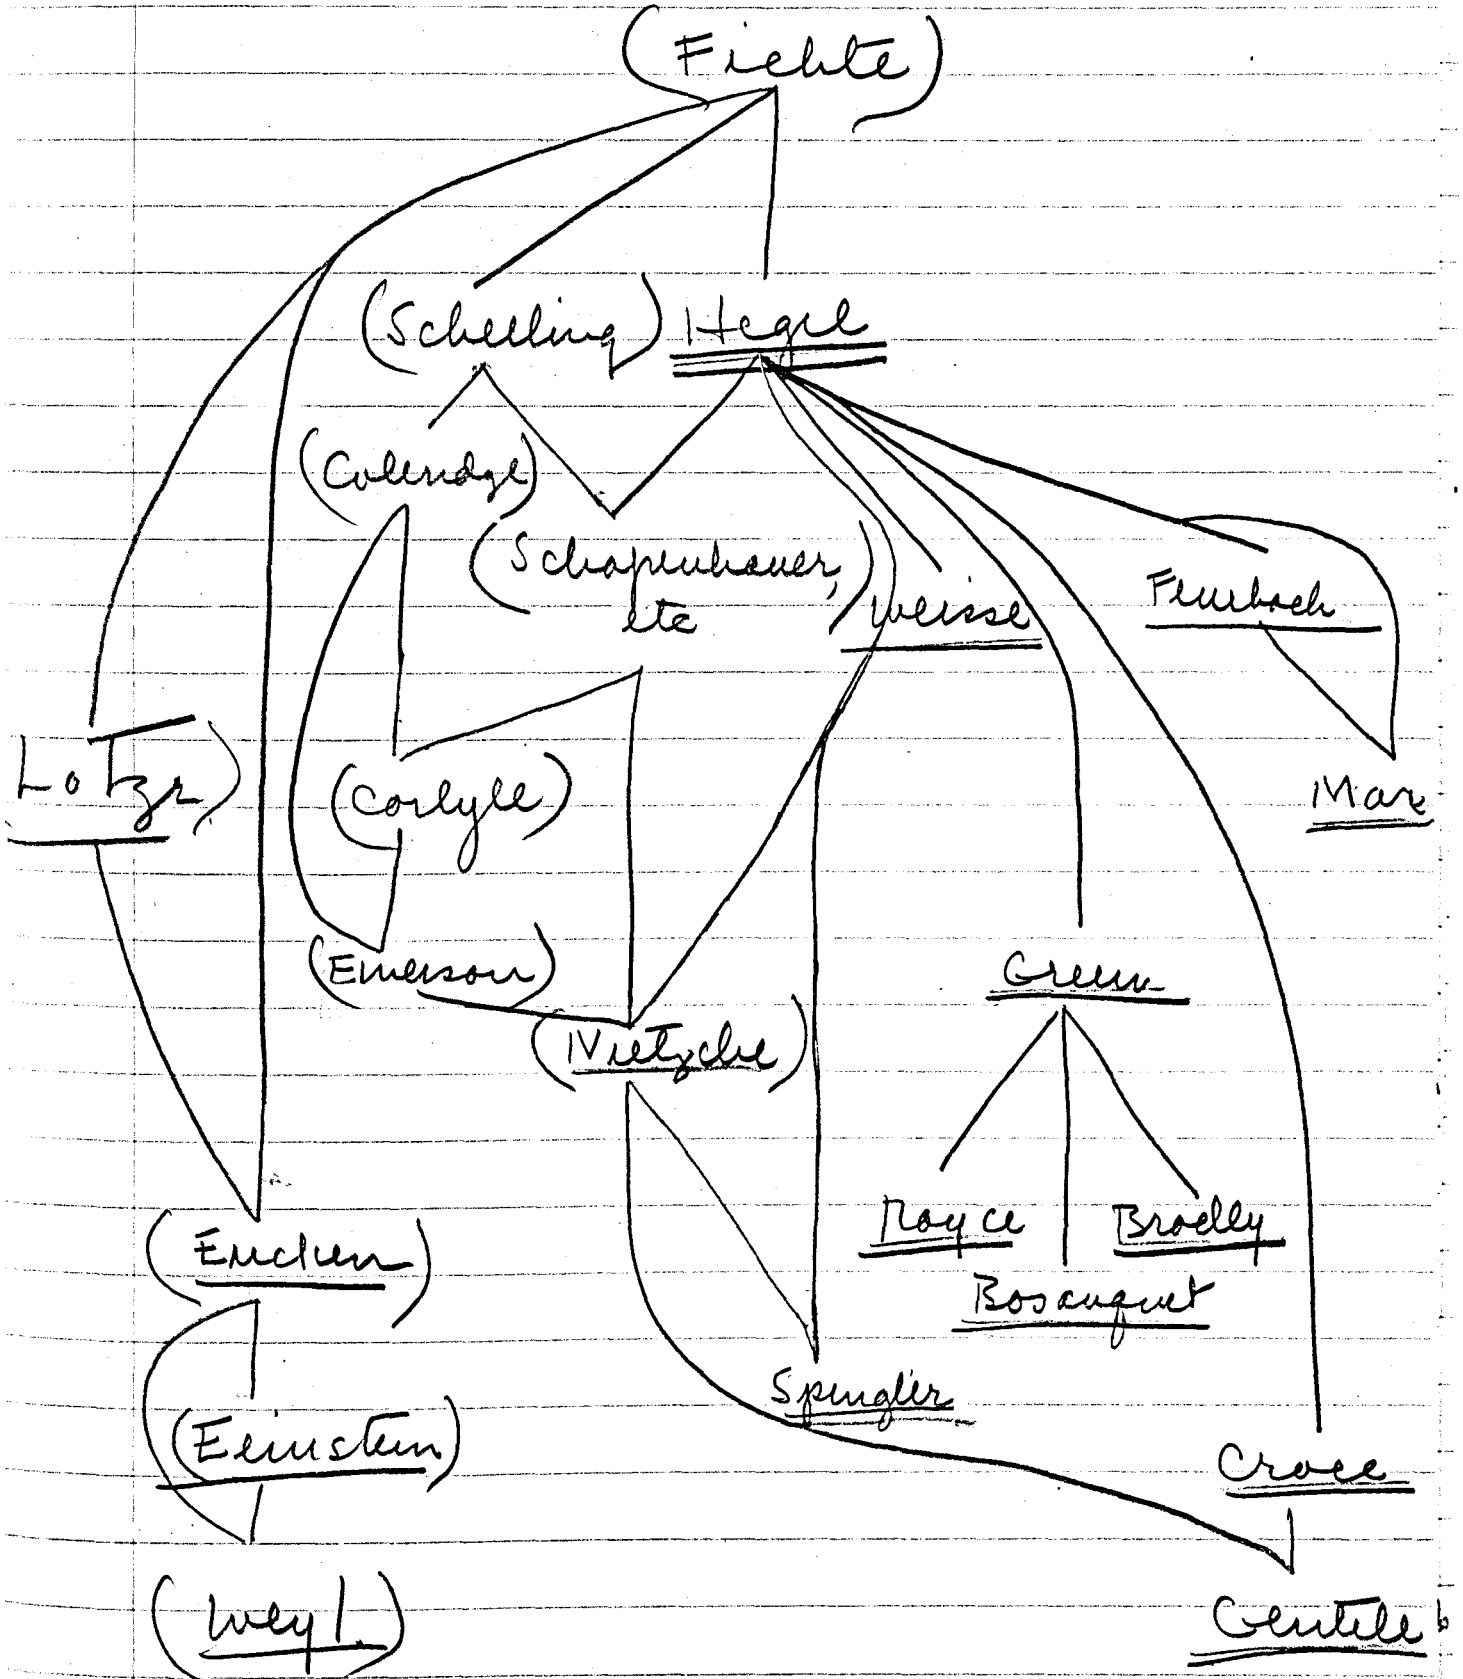 (Fichte)
(Schelling) Hegel
(Coleridge)
(Schopenhauer,
etc
Weisse
Feuerbach
Lotze)
(Carlyle)
Marx
(Emerson)
Green
(Nietzche)
Royce
Bradley
(Eucken)
Bosanquet
Spengler
(Einstein)
Croce
(Weyl)
Gentile